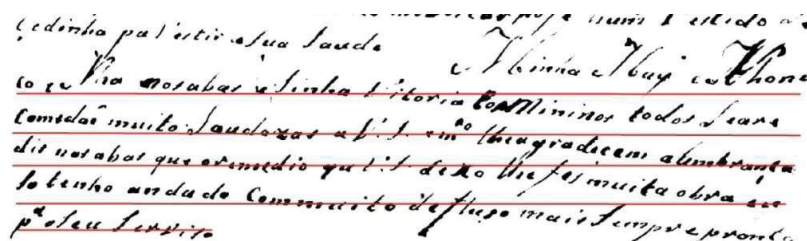 num Vestido
çedinha pa Vestir e sua Saude
Minha May e a Thone
Nha nosabas e Sinha Vitoria Cos Mininos todos Seare
Comedaõ muito Saudozas a V.S. em.to lhe agradiçem alembrança
dis nosabas que oremedio que V.S. dexo lhe fes muita obra eu
So tenho andado Com muito defluso mais Sempre pronta
p.a oSeu Serviso